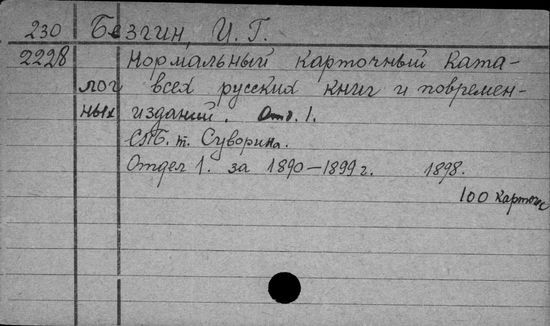 230 Безгин, И. Г.
2228 Нормальный карточный ката-
лог всех русских книг и повремен-
ных изданий. Отд. 1.
СПБ. т. Суворина.
Отдел 1. за 1890—1899 г. 1898.
100 карточек